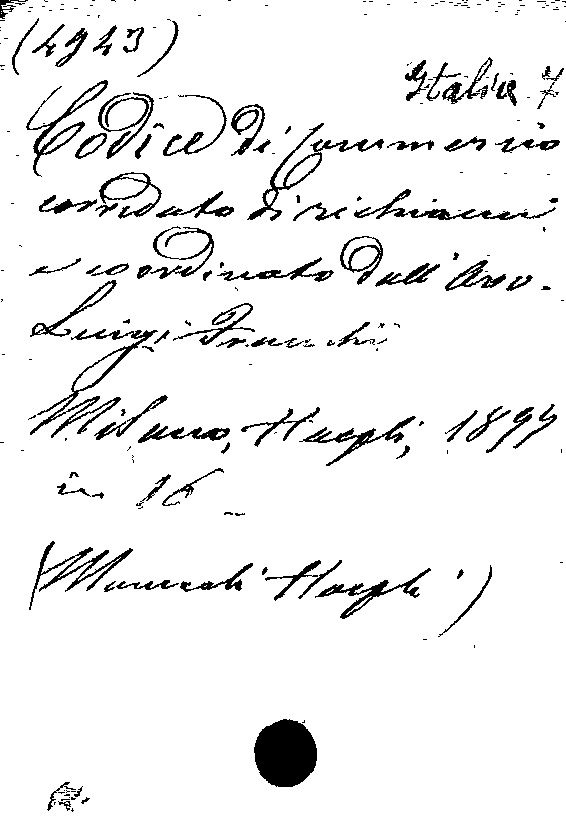 (4943)
Italia 7
Codice di Commercio
corredato di richiami
e coordinato dall' Avv.
Luigi Franchi
Milano, Hoepli, 1897
in 16
(Manuali Hoepli)